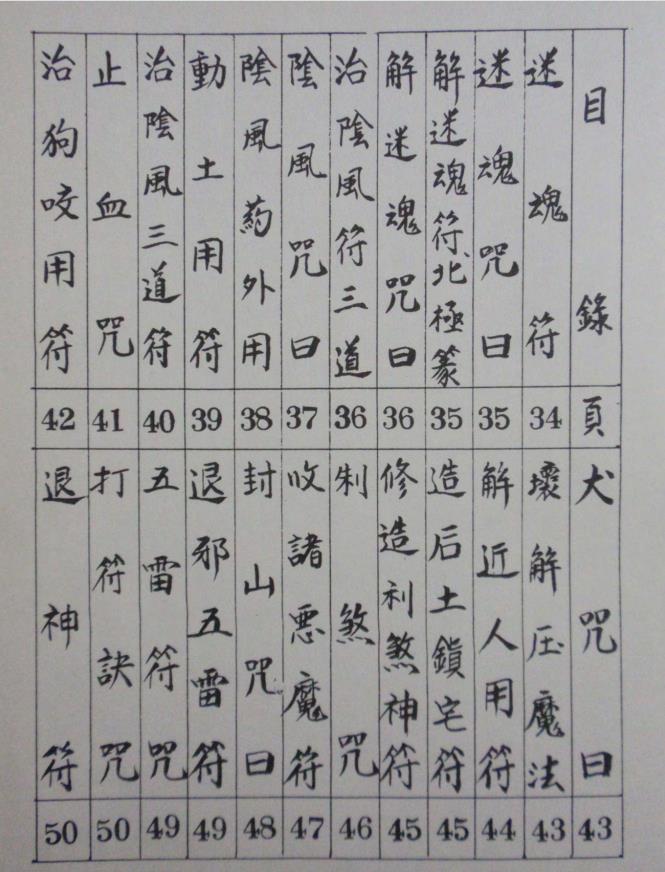 目錄 頁
迷魂符 34
迷魂咒曰 35
解迷魂符北極篆 35
解迷魂咒曰 36
治陰風符三道 36
陰風咒曰 37
陰風药外用 38
動土用符 39
治陰風三道符 40
止血咒 41
治狗咬用符 42
犬咒曰 43
壞解压魔法 43
解近人用符 44
造后土鎖宅符 45
修造利煞神符 45
制煞咒 46
收諸悪魔符 47
封山咒曰 48
退邪五雷符 49
五雷符咒 49
打符訣咒 50
退神符 50